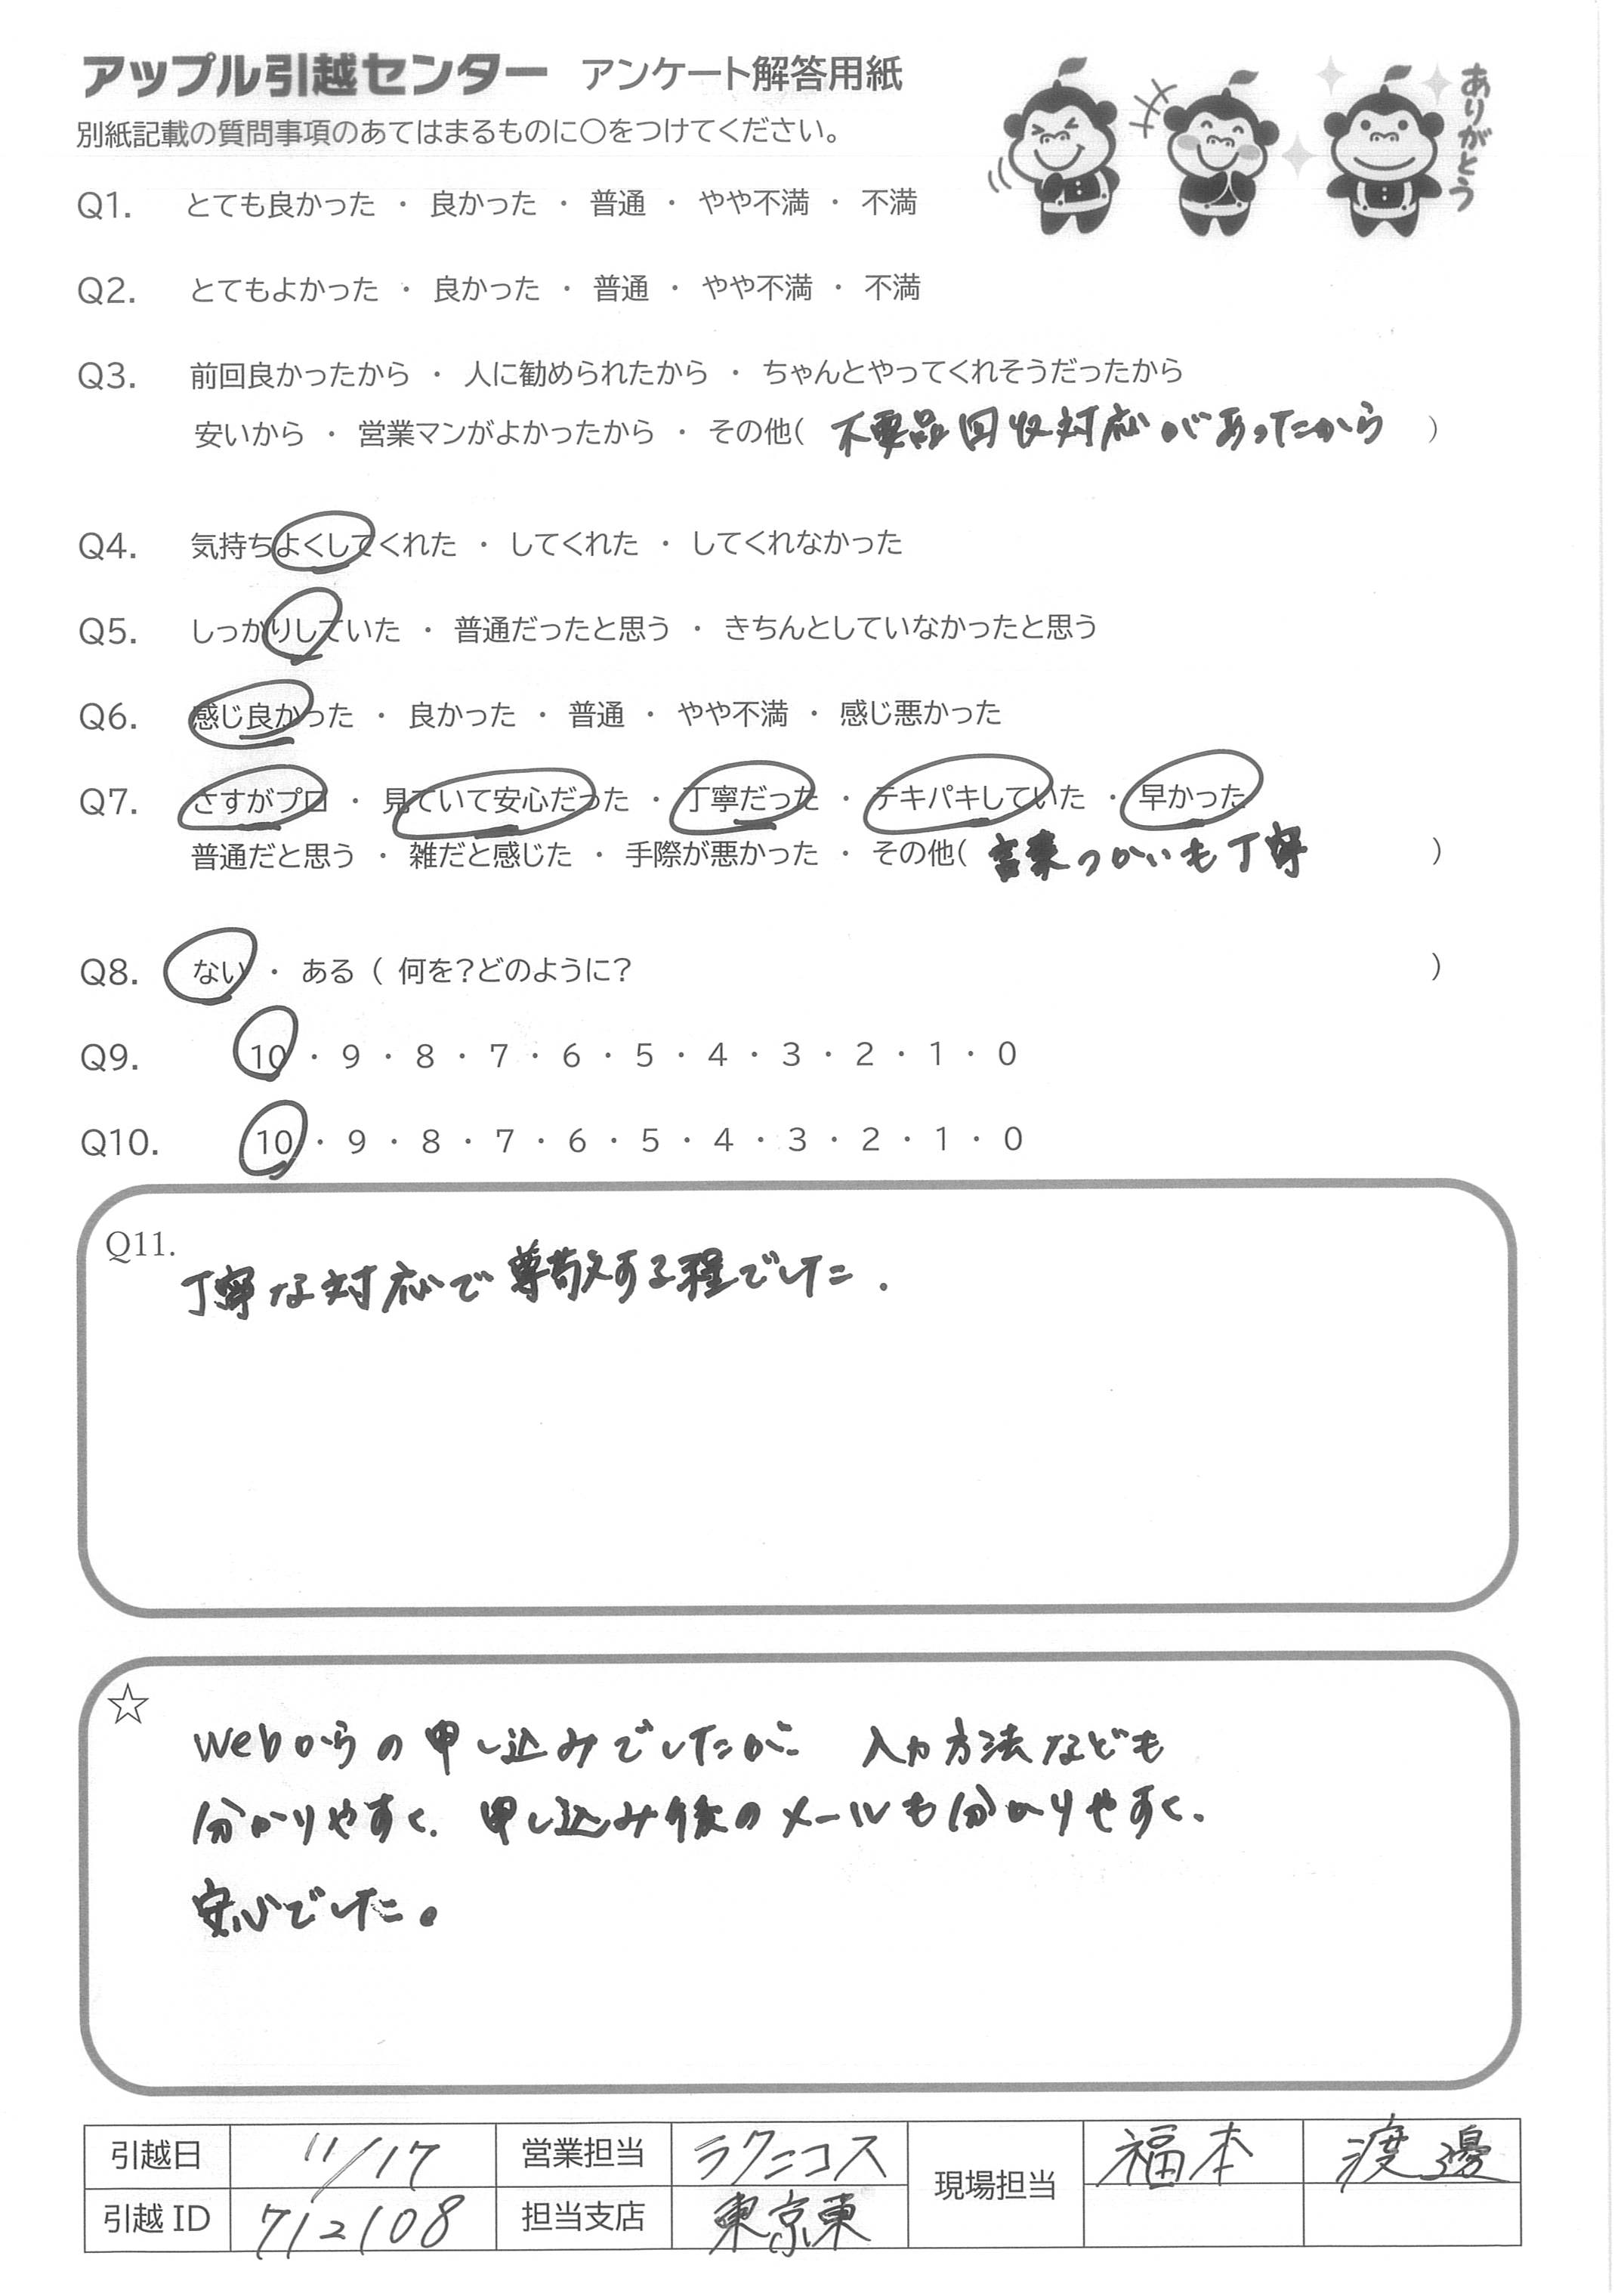 アップル引越センター アンケート解答用紙
別紙記載の質問事項のあてはまるものに○をつけてください。
ありがとう
Q1. とても良かった ・ 良かった ・ 普通 ・ やや不満 ・ 不満
Q2. とてもよかった ・ 良かった ・ 普通 ・ やや不満 ・ 不満
Q3. 前回良かったから ・ 人に勧められたから ・ ちゃんとやってくれそうだったから
安いから ・ 営業マンがよかったから ・ その他( 不要品回収対応があったから )
Q4. 気持ちよくしてくれた ・ してくれた ・ してくれなかった
Q5. しっかりしていた ・ 普通だったと思う ・ きちんとしていなかったと思う
Q6. 感じ良かった ・ 良かった ・ 普通 ・ やや不満 ・ 感じ悪かった
Q7. さすがプロ ・ 見ていて安心だった ・ 丁寧だった ・ テキパキしていた ・ 早かった
普通だと思う ・ 雑だと感じた ・ 手際が悪かった ・ その他( 言葉つかいも丁寧 )
Q8. ない ・ ある ( 何を?どのように? )
Q9. 10 ・ 9 ・ 8 ・ 7 ・ 6 ・ 5 ・ 4 ・ 3 ・ 2 ・ 1 ・ 0
Q10. 10 ・ 9 ・ 8 ・ 7 ・ 6 ・ 5 ・ 4 ・ 3 ・ 2 ・ 1 ・ 0
Q11.
丁寧な対応で尊敬する程でした.
☆
Webからの申し込みでしたが、 入力方法なども
分かりやすく、申し込み後のメールも分かりやすく、
安心でした。
引越日 11/17 営業担当 ラクニコス 現場担当 福本 渡邊
引越 ID 712108 担当支店 東京東